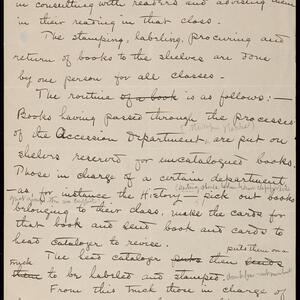 in consulting with readers and advising them
in their reading in that class.
The stamping, labeling, procuring and
return of books to the shelves are done
by one person for all classes.
The routine of a book is as follows:—
Books having passed through the processes
of the Accession Department, are put on
shelves reserved for uncatalogued books.
Those in charge of a certain department,
—as for instance the History—, pick out books
belonging to their class, make the cards for
that book and send book and cards to
head cataloger to revise.
puts them on a
The head cataloger puts then sends
truck
them to be labeled and stamped.
From this truck those in charge of